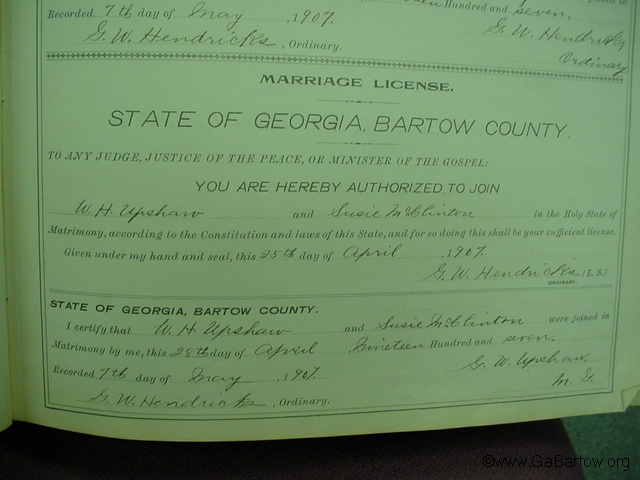 Hundred and seven.
Recorded 7th day of May, 1907.
G. W. Hendricks
G. W. Hendricks, Ordinary.
Ordinary
MARRIAGE LICENSE.
STATE OF GEORGIA, BARTOW COUNTY.
TO ANY JUDGE, JUSTICE OF THE PEACE, OR MINISTER OF THE GOSPEL:
YOU ARE HEREBY AUTHORIZED TO JOIN
W. H. Upshaw and Susie McClinton in the Holy State of
Matrimony, according to the Constitution and laws of this State, and for so doing this shall be your sufficient license.
Given under my hand and seal, this 25th day of April, 1907.
G. W. Hendricks (L. S.)
ORDINARY.
STATE OF GEORGIA, BARTOW COUNTY.
I certify that W. H. Upshaw and Susie McClinton were joined in
Matrimony by me, this 28th day of April Nineteen Hundred and seven.
G. W. Upshaw,
Recorded 7th day of May, 1907.
M. G.
G. W. Hendricks, Ordinary.
©www.GaBartow.org